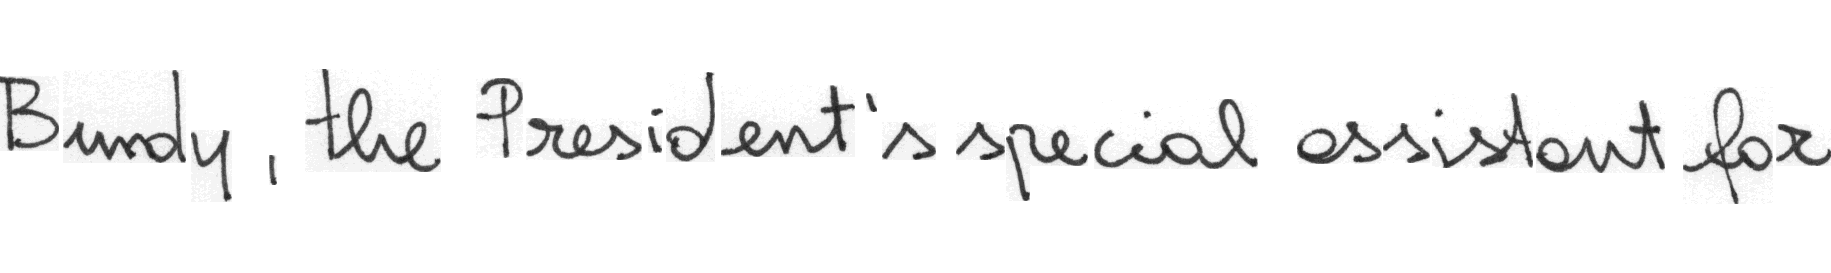 Bundy, the President's special assistant for